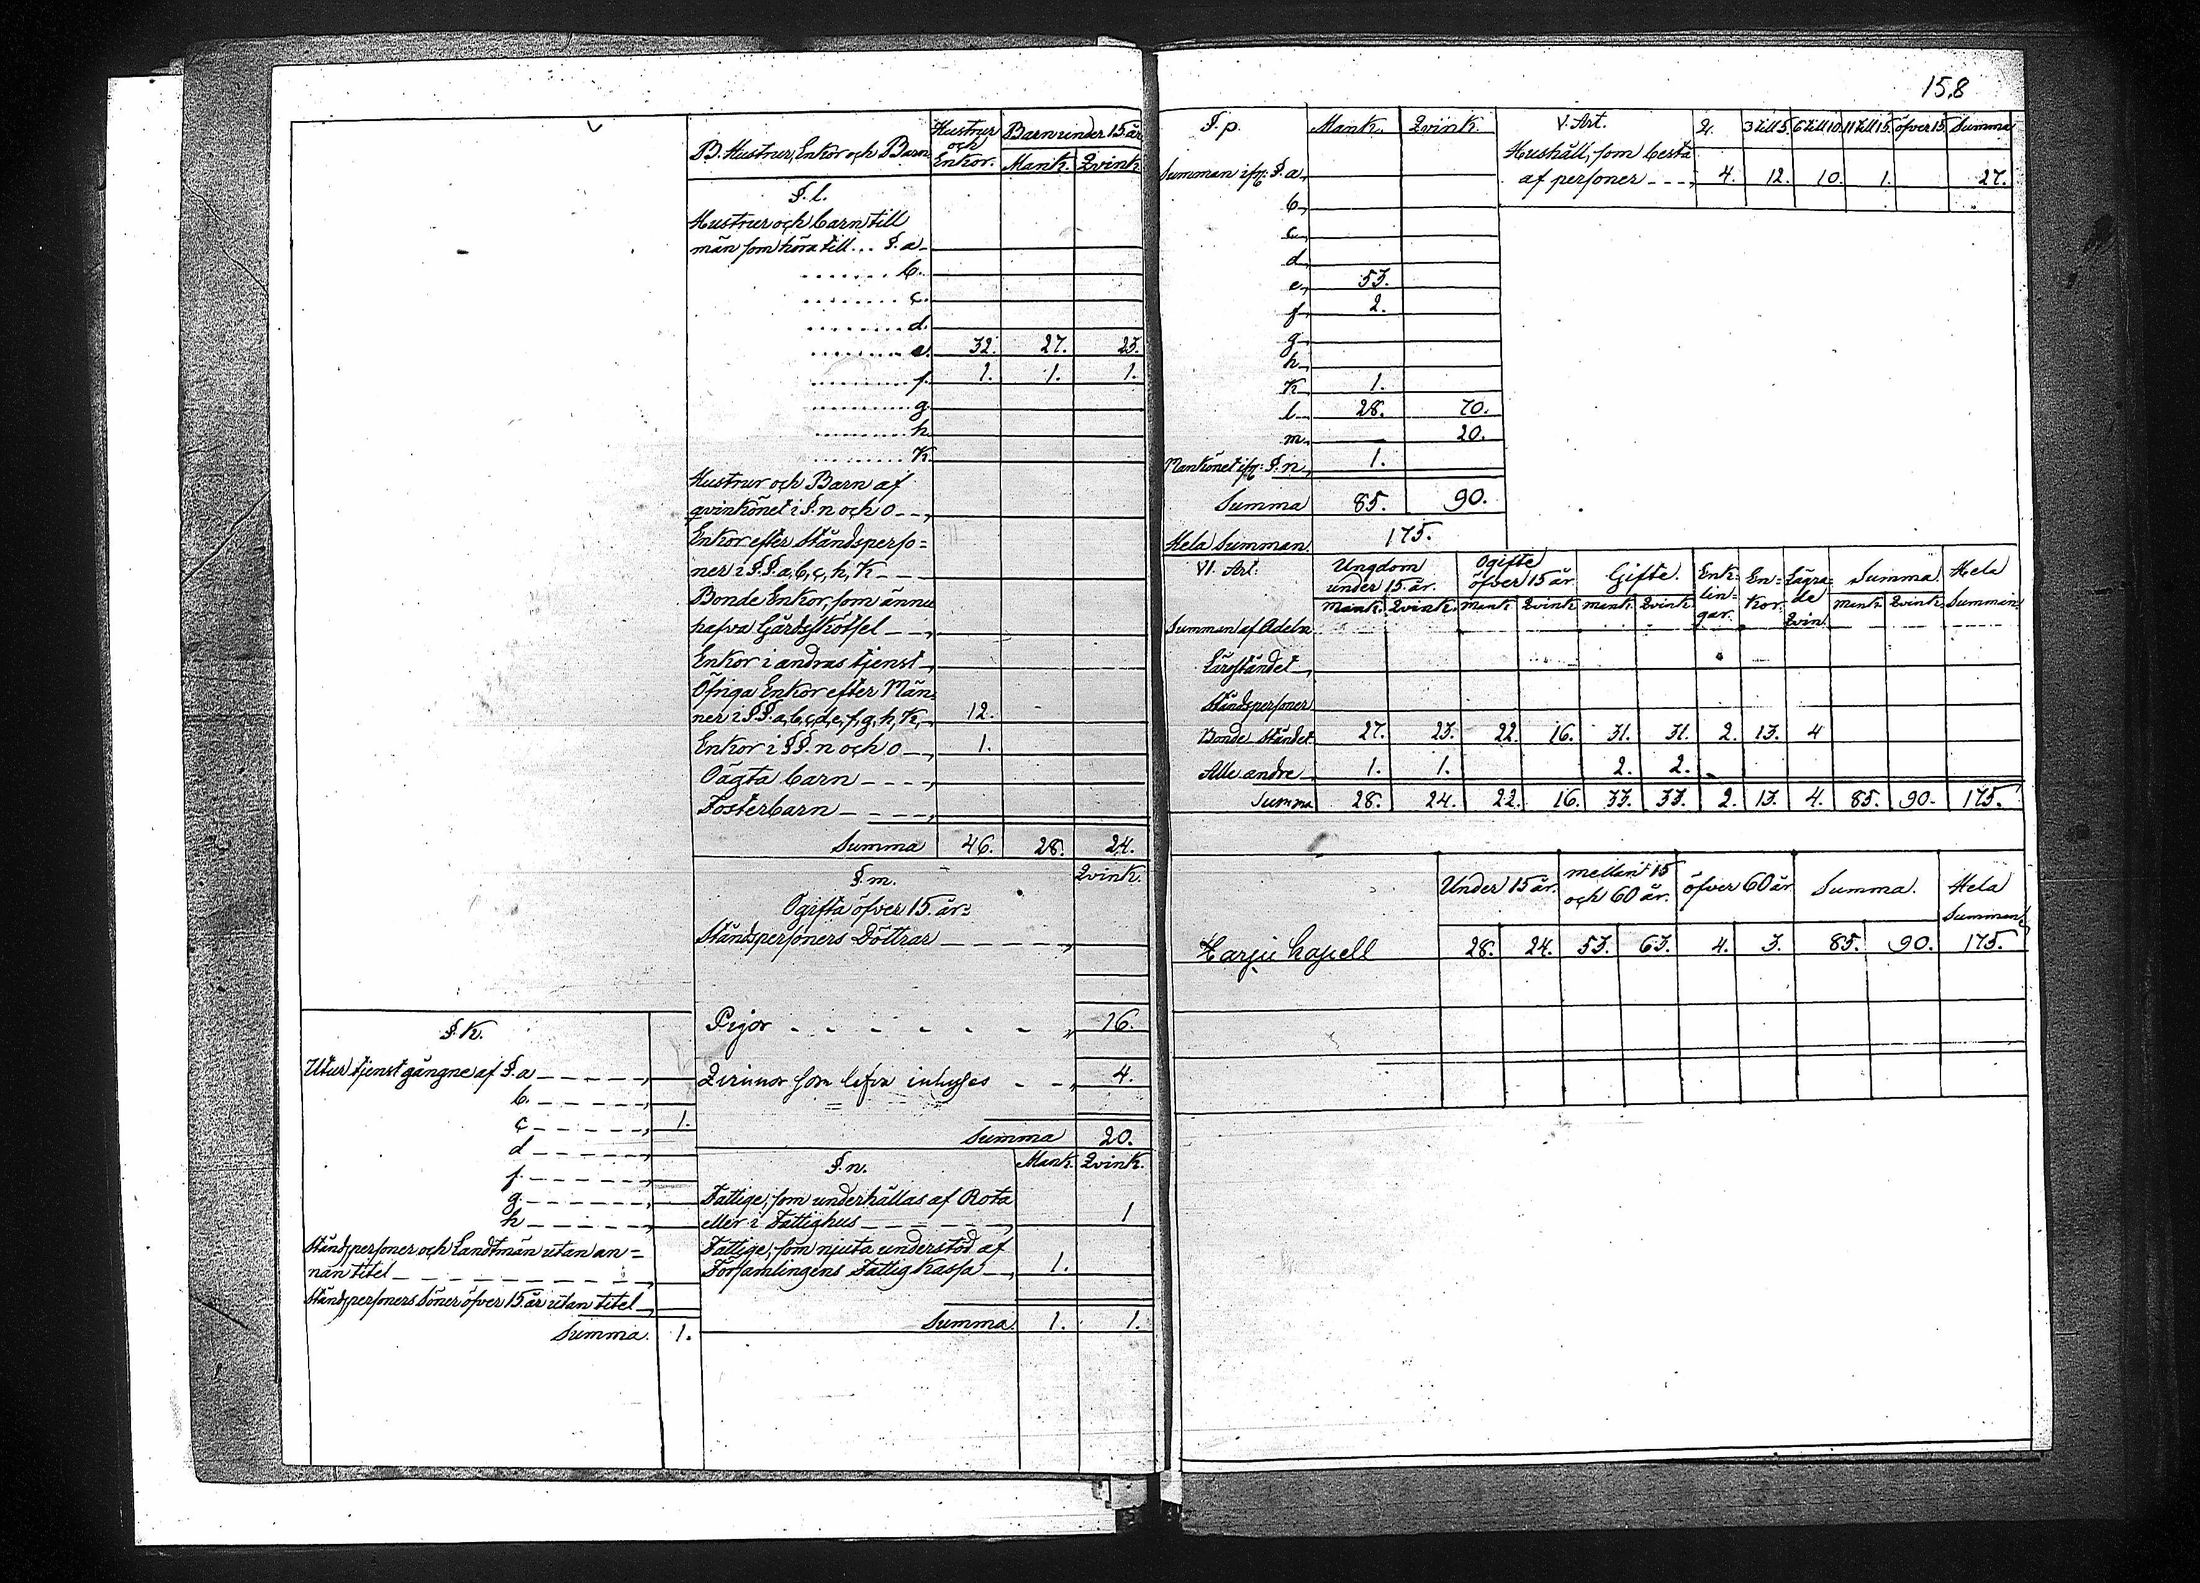 B. Hustrur, Enkor och Barn. Hustrur och Enkor. Barn under 15 år
Mank. Qvink.
§. l.
Hustrur och barn till
män som höra till... §. a
b.
c.
d.
e. 32. 27. 23.
f. 1. 1. 1.
g.
h.
K.
Hustrur och Barn af
qvinkönet i §. n och o
Enkor efter Ståndsperso=
ner i §.§. a, b, c, h, K
Bonde Enkor, som ännu
hafva Gårdsskötsel
Enkor i andras tjenst
Öfriga Enkor efter Män=
ner i §.§. a, b, c, d, e, f, g, h, K, 12.
Enkor i §§. n och o 1.
Oägta barn
Fosterbarn
Summa 46. 28. 24.
§. m. Qvink.
Ogifta öfver 15. år:
Ståndspersoners Döttrar
Pigor 16.
Qvinnor som lefva inhyses 4.
Summa 20.
§. n. Mank. Qvink.
Fattige, som underhållas af Rota
eller i Fattighus 1
Fattige, som njuta understöd af
Församlingens Fattig Kassa 1.
Summa 1. 1.
§. K.
Utur tjenst gångne af §. a
b.
c 1.
d
f.
g.
h
Ståndspersoner och Landtmän utan an=
nan titel
Ståndspersoners Söner öfver 15. år utan titel
Summa. 1.
158
§. p. Mank. Qvink.
Summan ifr: §. a,
b,
c,
d,
e, 53.
f, 2.
g,
h,
K 1.
l 28. 70.
m, — 20.
Mankönet ifr: §. n, 1.
Summa 85. 90.
Hela Summan. 175.
V. Art. 2. 3 till 5. 6 till 10. 11 till 15. öfver 15. Summa
Hushåll, som bestå
af personer 4. 12. 10. 1. 27.
VI. Art: Ungdom under 15 år. Ogifte öfver 15 år. Gifte. Enk=lin=gar. En=kor. Lägra=de Qvin. Summa. Hela Summan.
Mank. Qvink. Mank. Qvink. Mank. Qvink. Mank. Qvink.
Summan af Adeln
Läroståndet
Ståndspersoner
Bonde Ståndet 27. 23. 22. 16. 31. 31. 2. 13. 4
Alle andre 1. 1. 2. 2.
Summa 28. 24. 22. 16. 33. 33. 2. 13. 4. 85. 90. 175.
Under 15 år. mellan 15 och 60 år. öfver 60 år. Summa. Hela Summan.
Harju Capell 28. 24. 53. 63. 4. 3. 85. 90. 175.